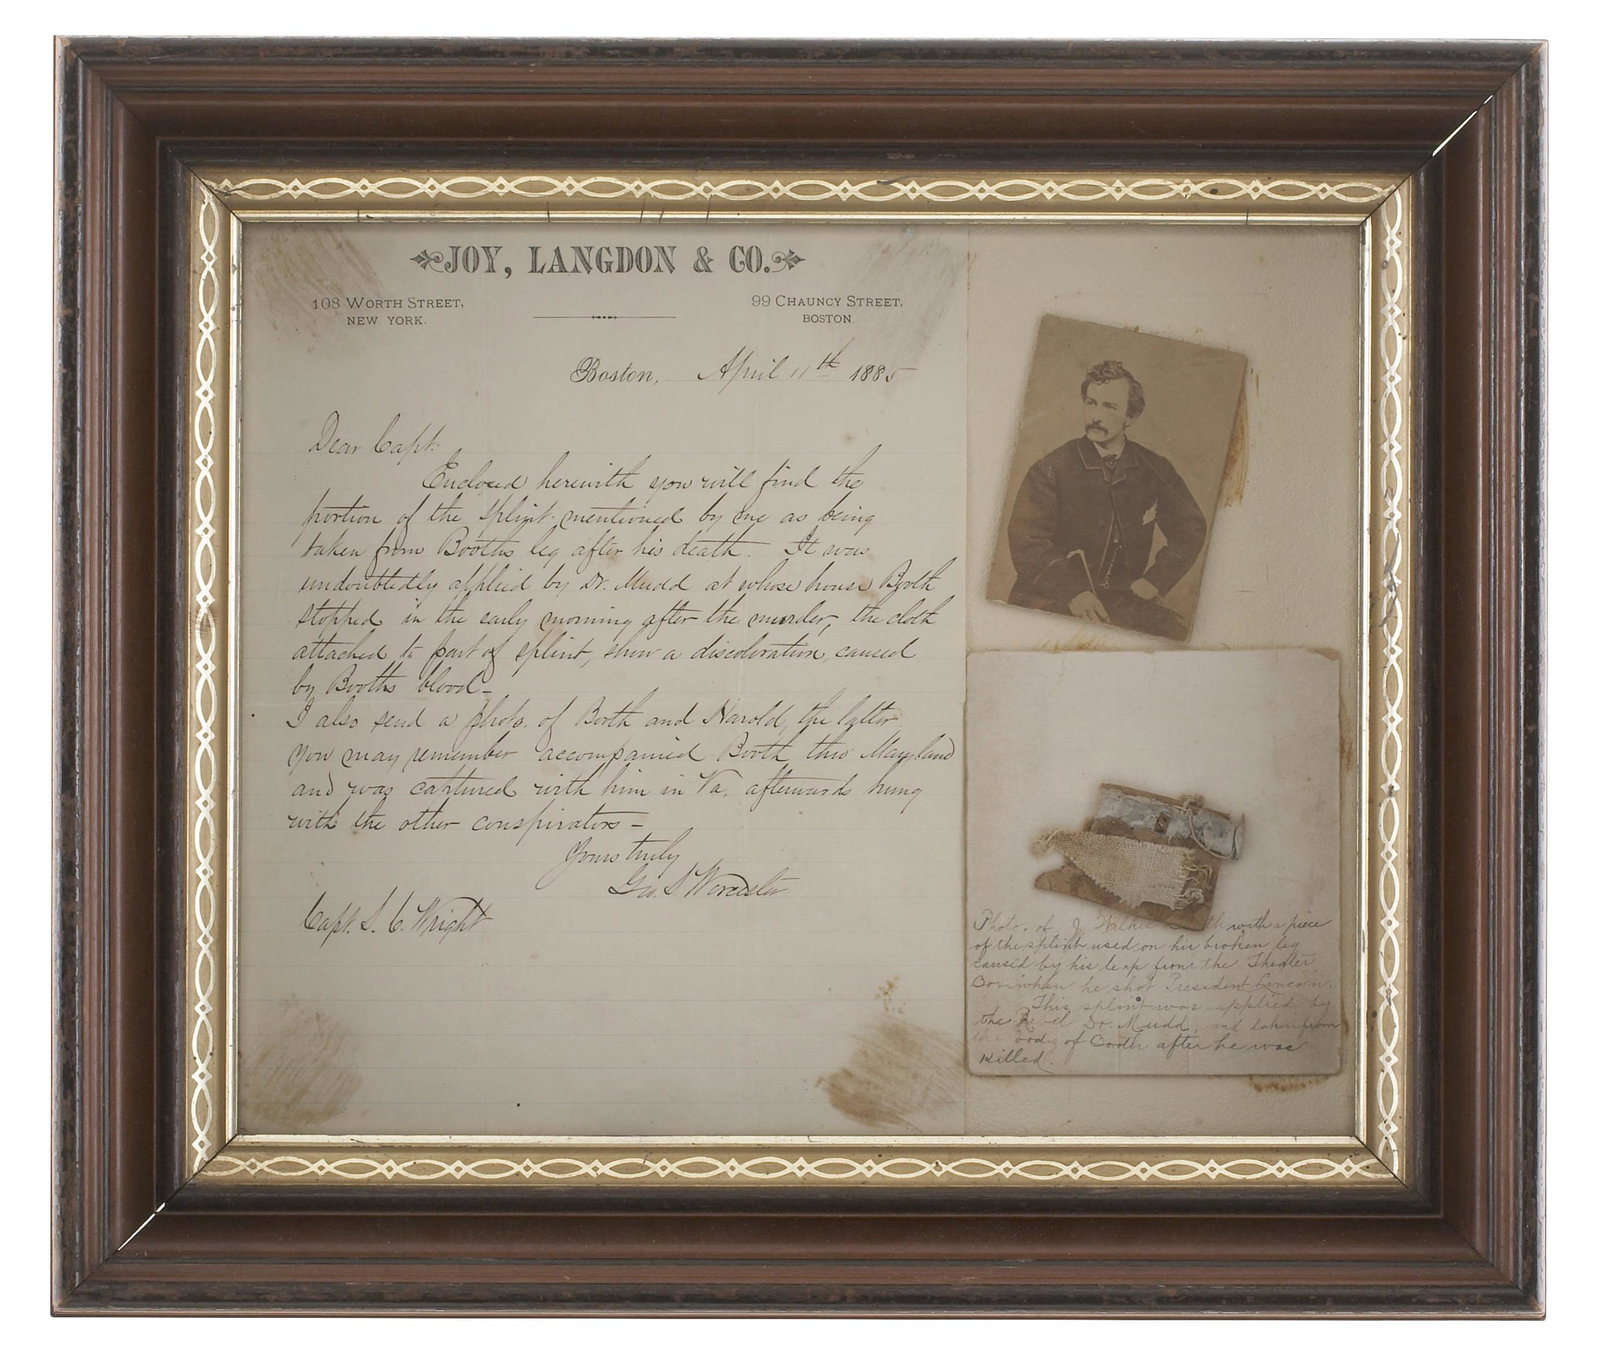 JOY, LANGDON & CO.
108 WORTH STREET,
NEW YORK.
99 CHAUNCY STREET,
BOSTON
Boston, April 11th 1885
Dear Capt.
Enclosed herewith you will find the
portion of the splint mentioned by me as being
taken from Booths leg after his death. It was
undoubtedly applied by Dr. Mudd at whose house Booth
stopped in the early morning after the murder, the cloth
attached to part of splint, show a discoloration caused
by Booths blood—
I also send a photo. of Booth and Harold, the latter
you may remember accompanied Booth thro Maryland
and was captured with him in Va. afterwards hung
with the other conspirators—
Yours truly
Geo. S Worcester
Capt. S. C. Wright
Photo. of J. Wilkes th with a piece
of the splint used on his broken leg
caused by his leap from the Theater
Box when he shot President Lincoln.
This splint was applied by
the Rebel Dr. Mudd, and taken from
the body of Booth after he was
killed.